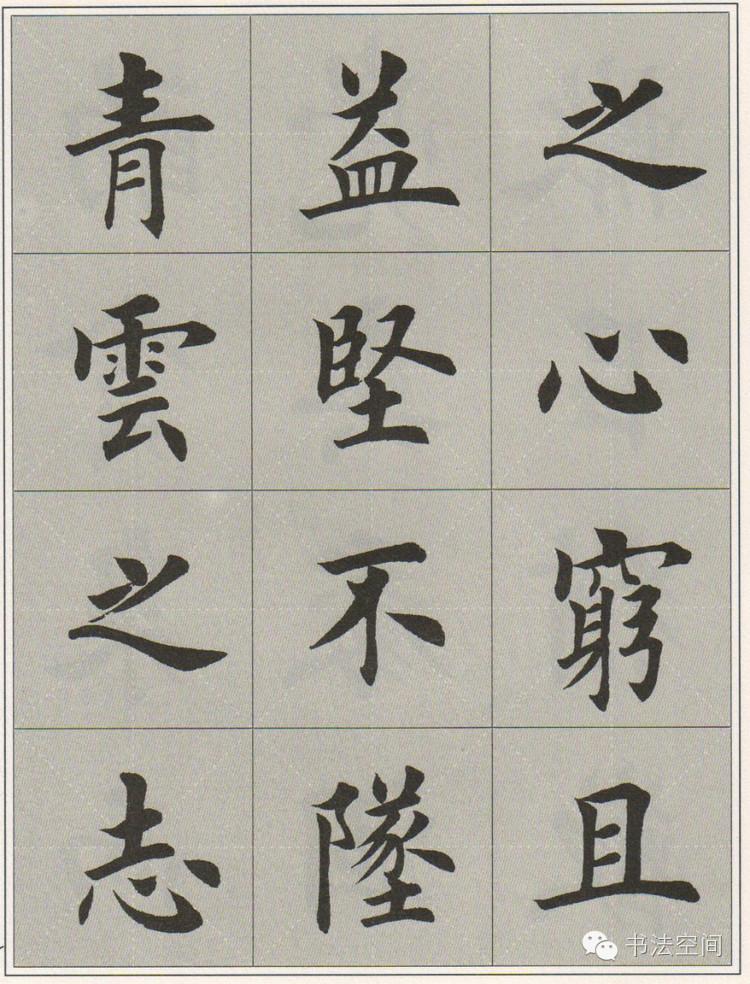 之心窮且
益堅不墜
青雲之志
书法空间